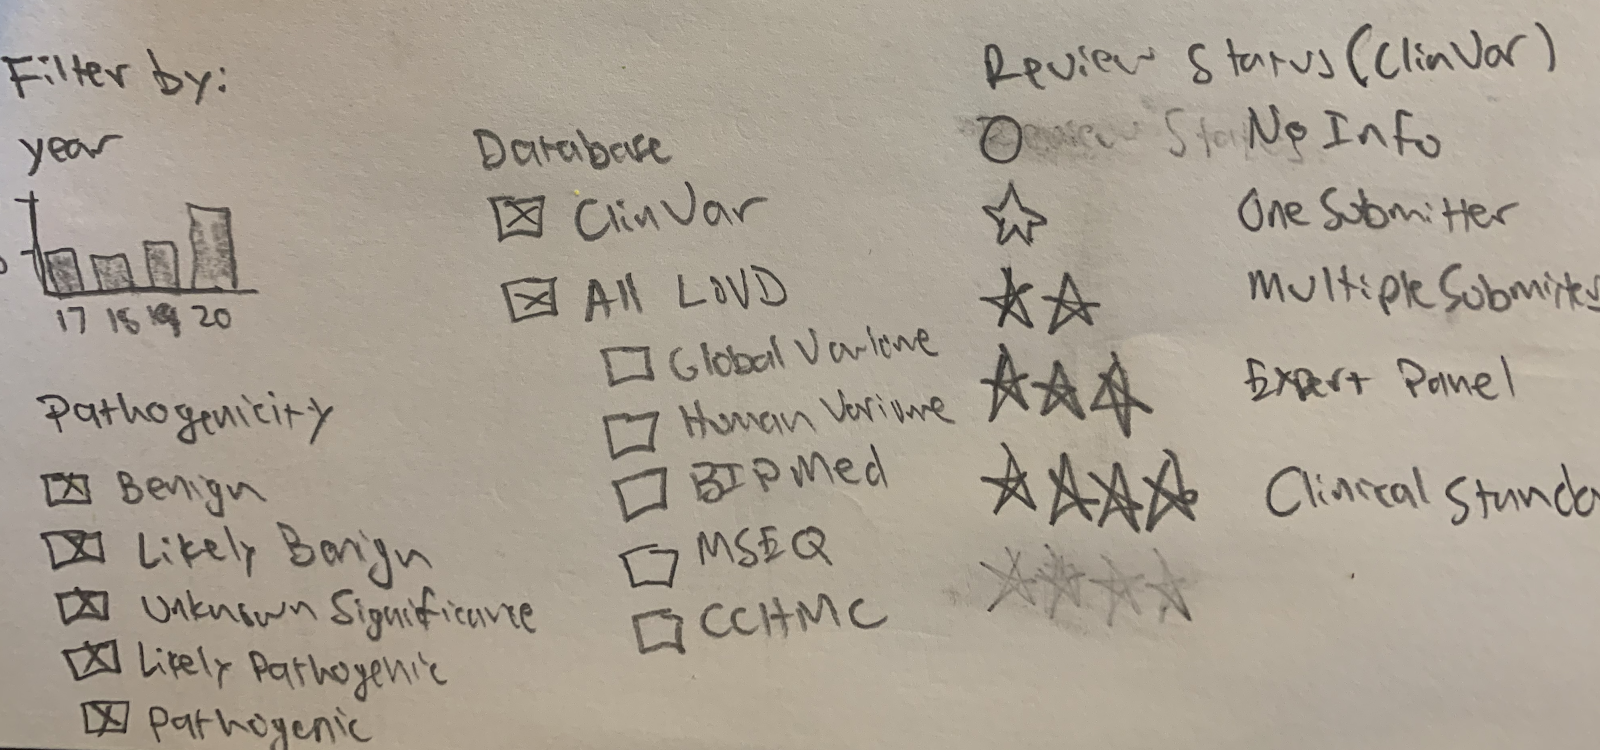 Filter by:
year
17 18 19 20
Pathogenicity
Benign
Likely Benign
Unknown Significance
Likely Pathogenic
Pathogenic
Database
ClinVar
All LOVD
Global Variome
Human Variome
BIPMed
MSEQ
CCHMC
Review Status (ClinVar)
No Info
One Submitter
Multiple Submitters
Expert Panel
Clinical Standa